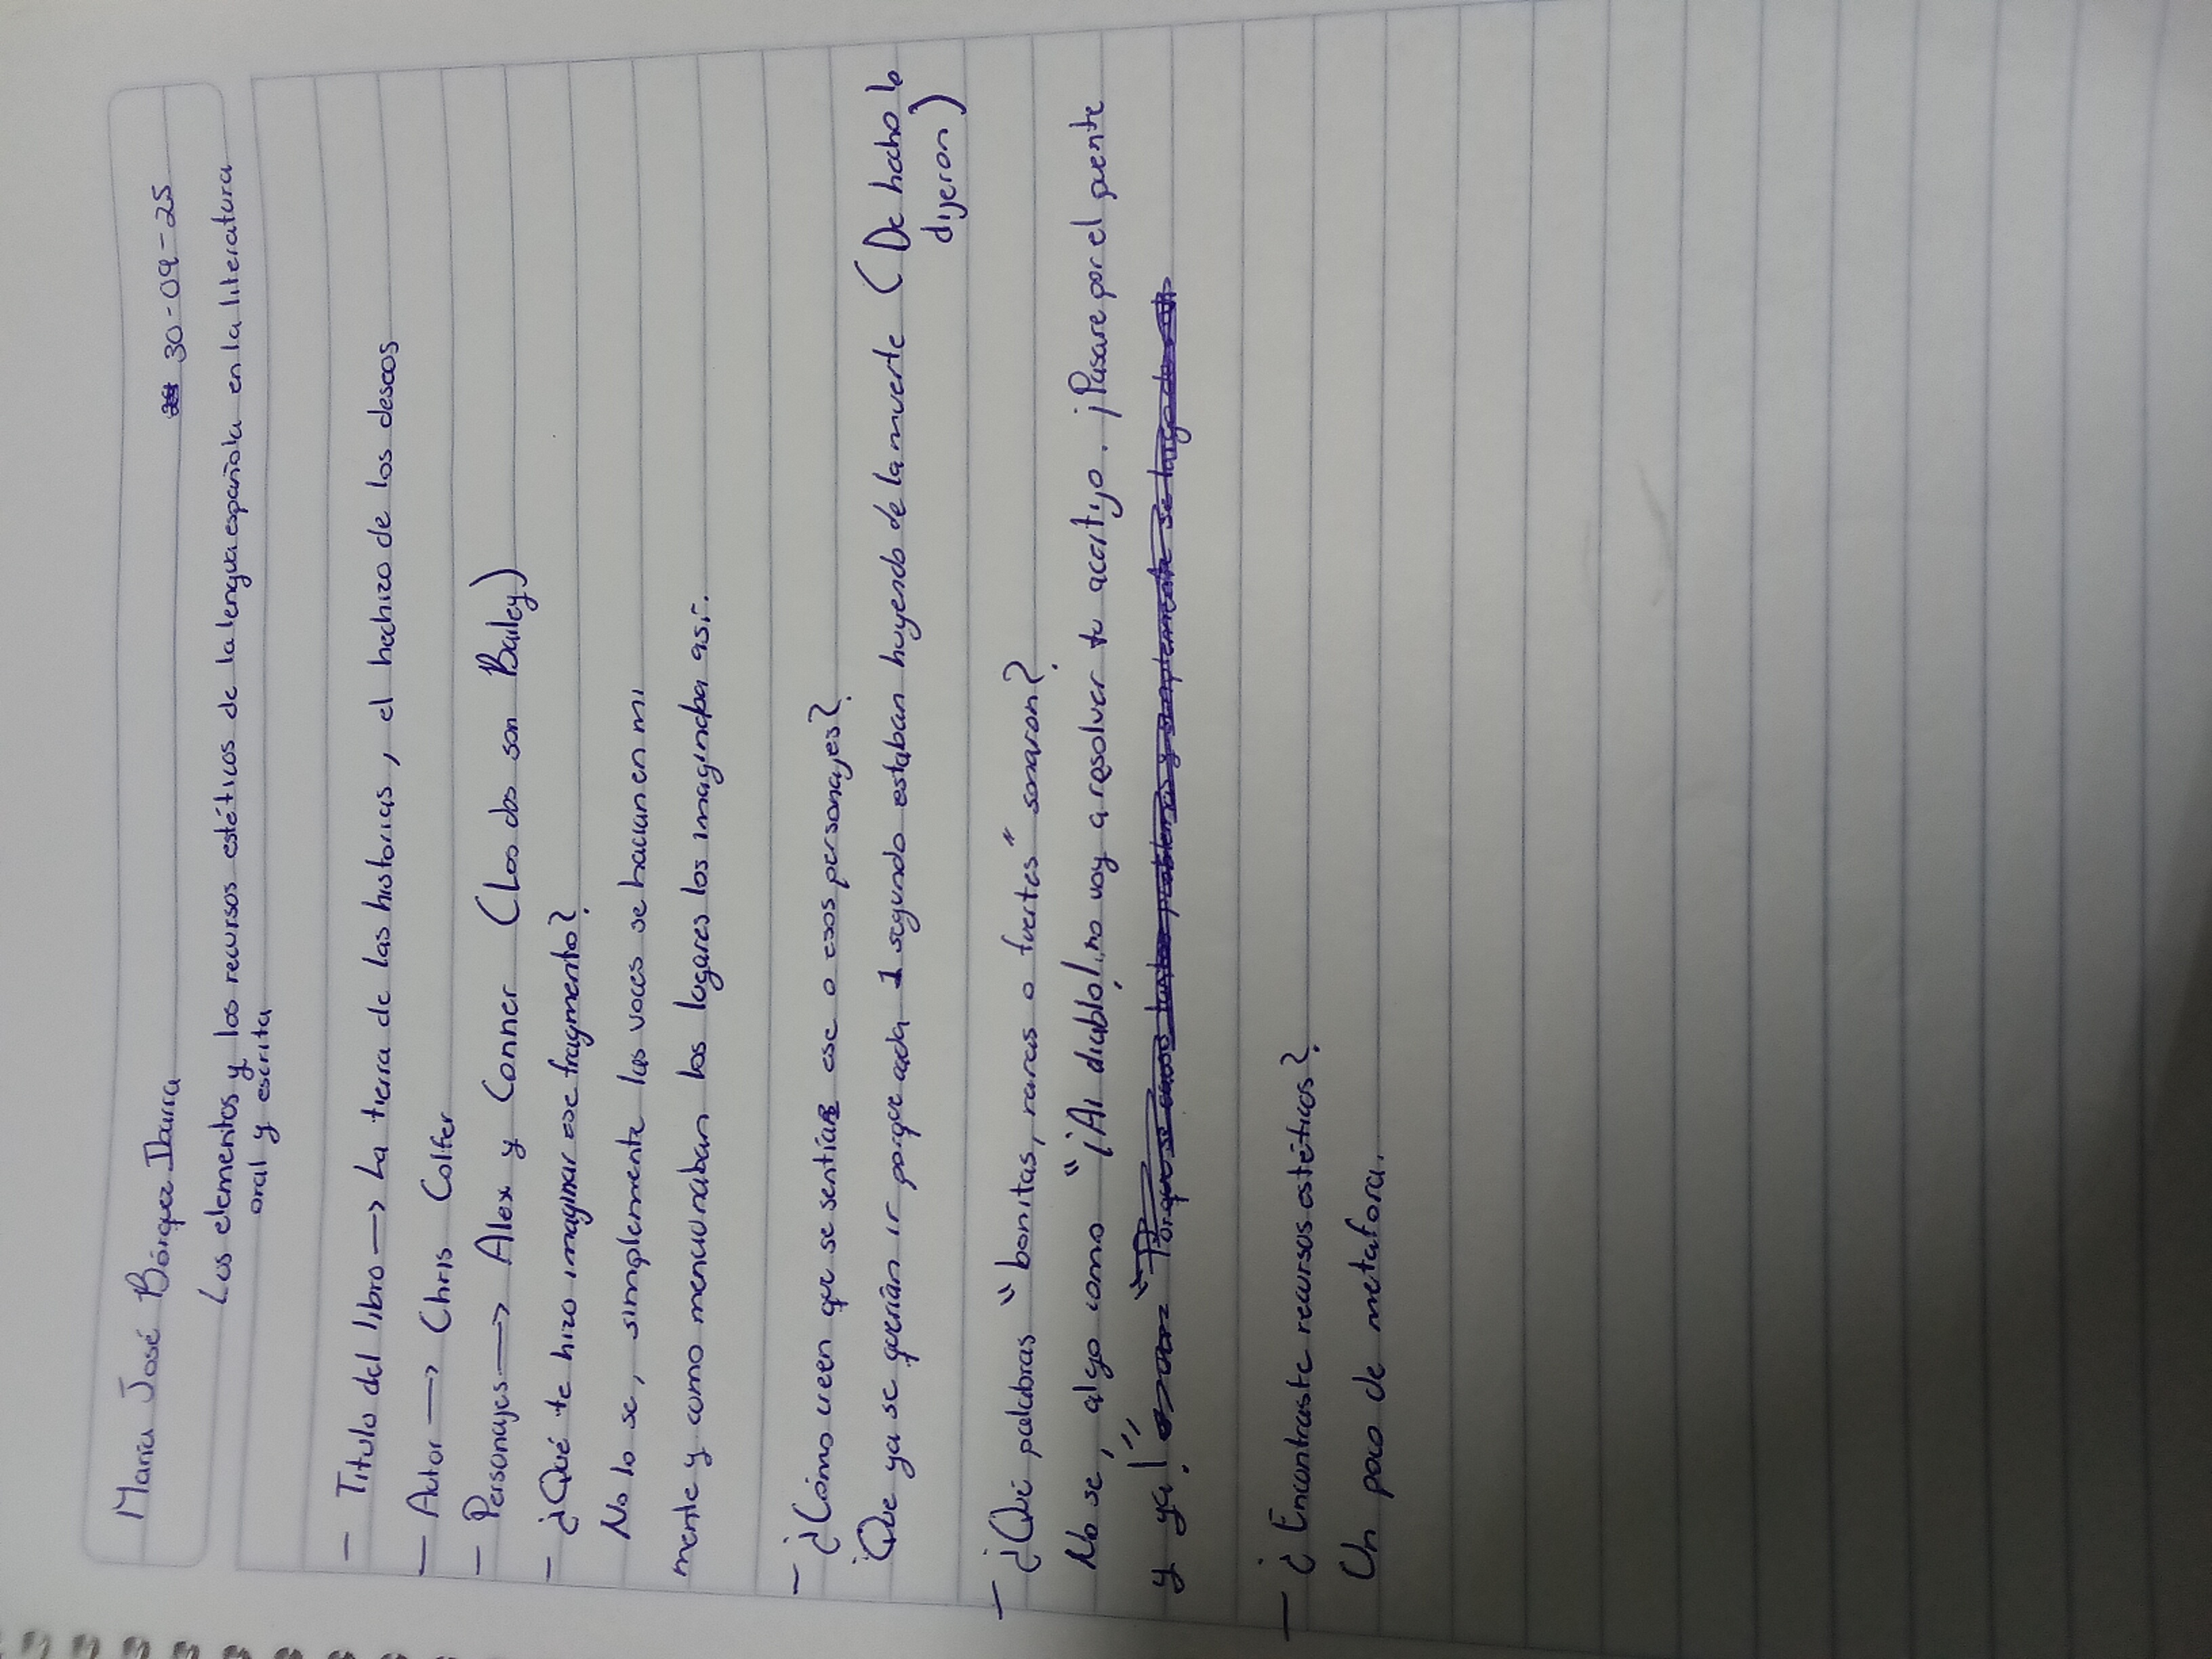 María José Bórquez Ibarra 30-09-25
Los elementos y los recursos estéticos de la lengua española en la literatura
oral y escrita
- Titulo del libro → La tierra de las historias, el hechizo de los deseos
- Autor → Chris Colfer
- Personajes → Alex y Conner (Los dos son Bailey)
- ¿Qué te hizo imaginar ese fragmento?
No lo se, simplemente las voces se hacian en mi
mente y como mencionaban los lugares los imaginaba así.
- ¿Cómo creen que se sentía ese o esos personajes?
Que ya se querían ir porque cada 1 segundo estaban huyendo de la muerte (De hecho lo
dijeron)
- ¿Qué palabras "bonitas, raras o fuertes" sonaron?
No se, algo como "¡Al diablo!, no voy a resolver tu acertijo. ¡Pasare por el puente
y ya!"
- ¿Encontraste recursos estéticos?
Un poco de metafora.